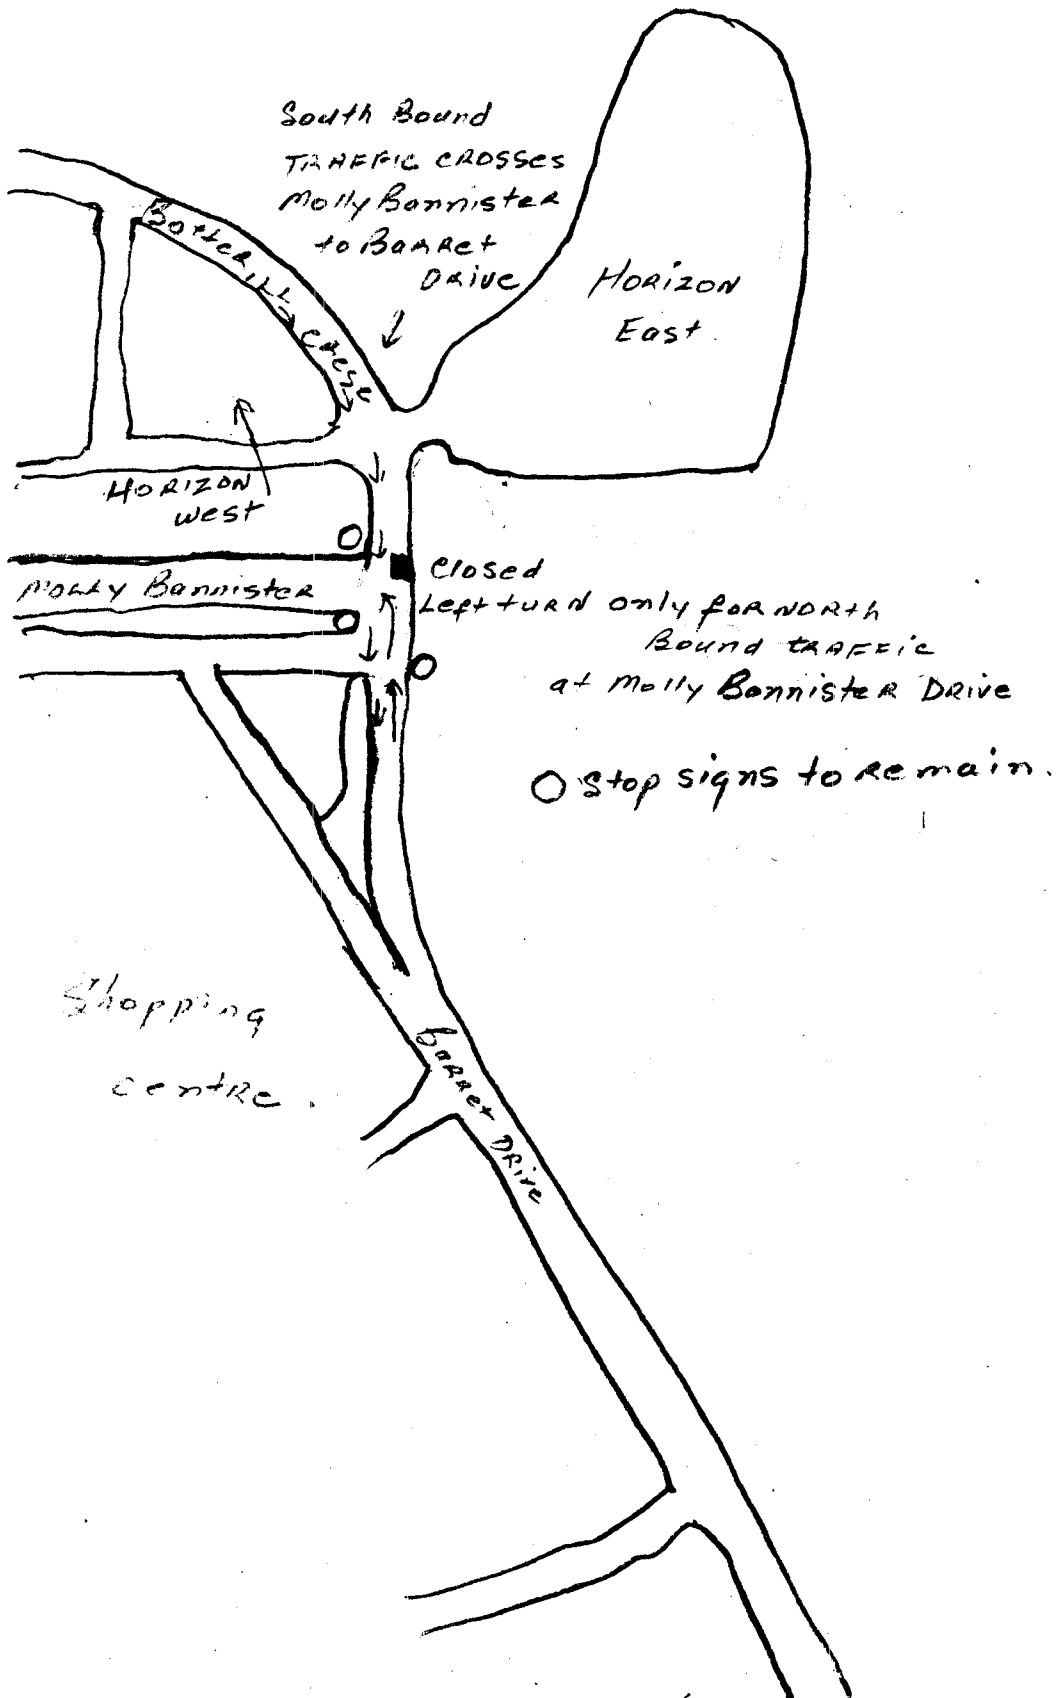 South Bound
TRAFFIC CROSSES
Molly Bannister
to Barret
DRIVE
Botterill Cresc
HORIZON
East.
HORIZON
west
Molly Bannister
Closed
Left turn only for North
Bound traffic
at Molly Bannister Drive
O Stop signs to remain.
Shopping
centre.
Barret Drive